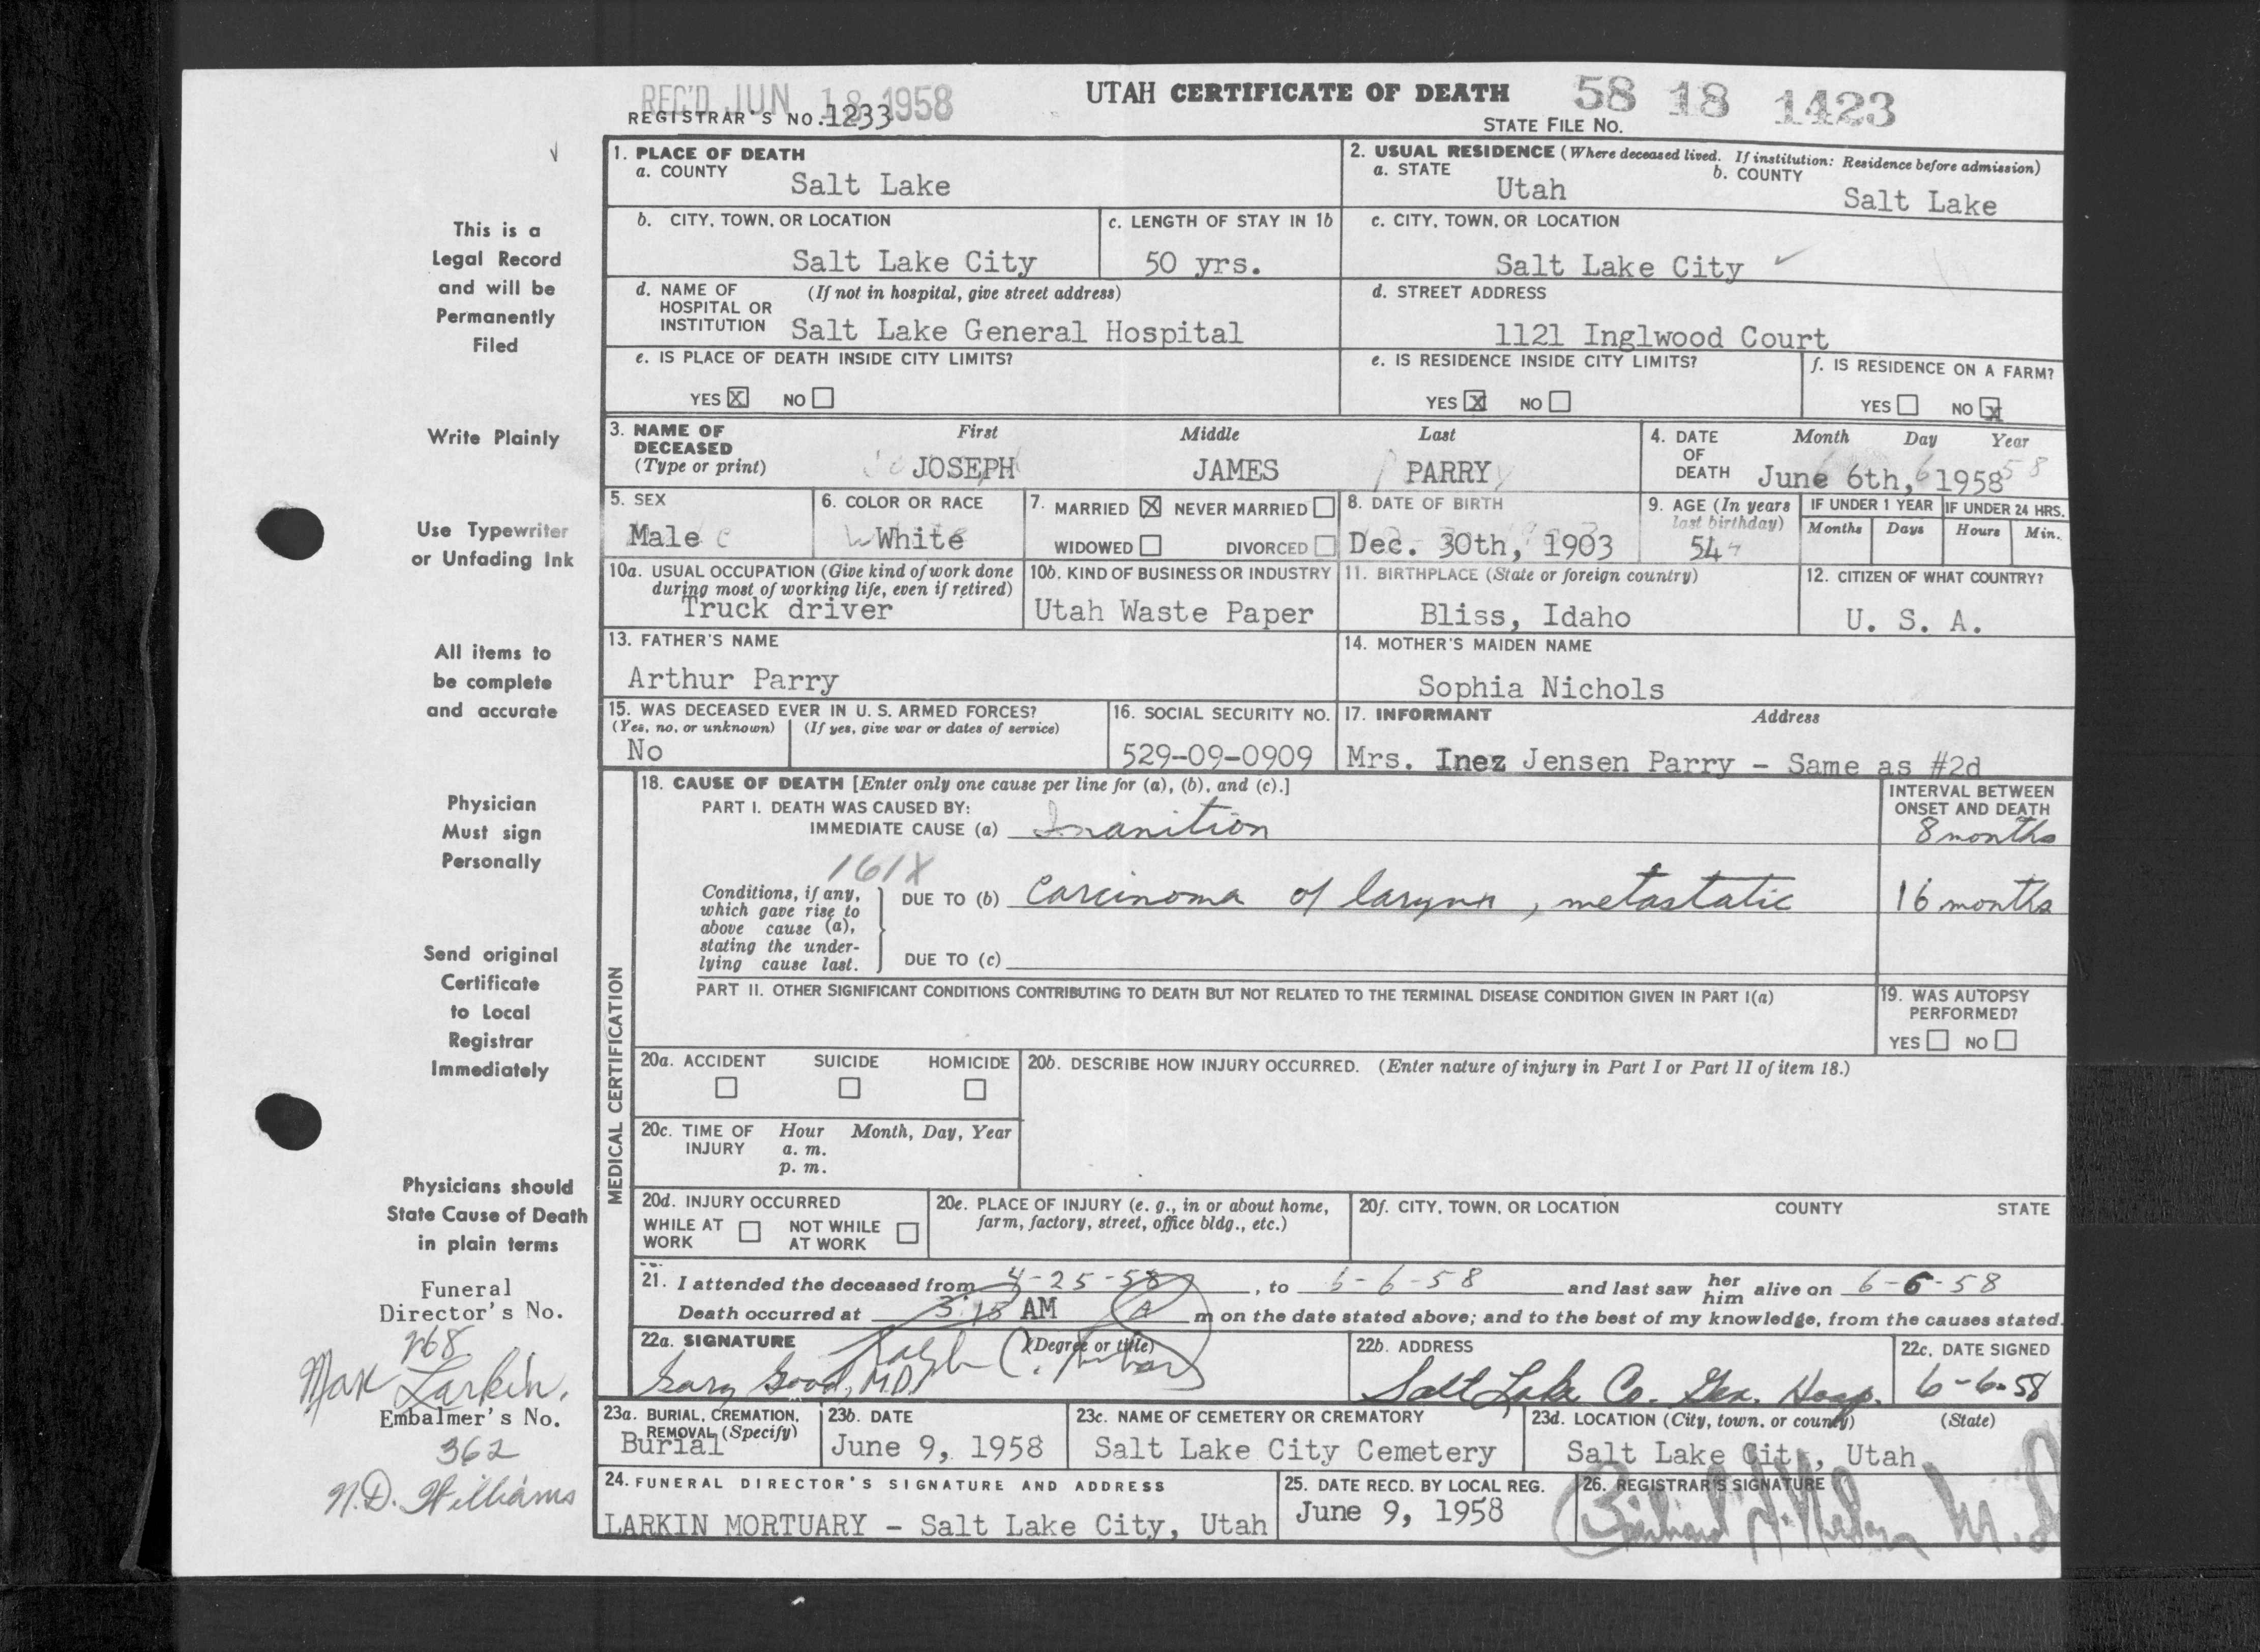 REC'D JUN 18 1958
UTAH CERTIFICATE OF DEATH
58 18 1423
REGISTRAR'S NO. 1233
STATE FILE NO.
This is a
Legal Record
and will be
Permanently
Filed
Write Plainly
Use Typewriter
or Unfading Ink
All items to
be complete
and accurate
Physician
Must sign
Personally
Send original
Certificate
to Local
Registrar
Immediately
Physicians should
State Cause of Death
in plain terms
Funeral
Director's No.
268
Max Larkin.
Embalmer's No.
362
N.D. Williams
1. PLACE OF DEATH
a. COUNTY
Salt Lake
2. USUAL RESIDENCE (Where deceased lived. If institution: Residence before admission)
a. STATE
Utah
b. COUNTY
Salt Lake
b. CITY, TOWN, OR LOCATION
Salt Lake City
c. LENGTH OF STAY IN 1b
50 yrs.
c. CITY, TOWN, OR LOCATION
Salt Lake City
d. NAME OF HOSPITAL OR INSTITUTION (If not in hospital, give street address)
Salt Lake General Hospital
d. STREET ADDRESS
1121 Inglwood Court
e. IS PLACE OF DEATH INSIDE CITY LIMITS?
YES X NO
e. IS RESIDENCE INSIDE CITY LIMITS?
YES X NO
f. IS RESIDENCE ON A FARM?
YES NO X
3. NAME OF DECEASED (Type or print)
First Middle Last
JOSEPH JAMES PARRY
4. DATE OF DEATH
Month Day Year
June 6th, 1958
5. SEX
Male
6. COLOR OR RACE
White
7. MARRIED X NEVER MARRIED
WIDOWED DIVORCED
8. DATE OF BIRTH
Dec. 30th, 1903
9. AGE (In years last birthday)
54
IF UNDER 1 YEAR
Months Days
IF UNDER 24 HRS.
Hours Min.
10a. USUAL OCCUPATION (Give kind of work done during most of working life, even if retired)
Truck driver
10b. KIND OF BUSINESS OR INDUSTRY
Utah Waste Paper
11. BIRTHPLACE (State or foreign country)
Bliss, Idaho
12. CITIZEN OF WHAT COUNTRY?
U. S. A.
13. FATHER'S NAME
Arthur Parry
14. MOTHER'S MAIDEN NAME
Sophia Nichols
15. WAS DECEASED EVER IN U. S. ARMED FORCES?
(Yes, no, or unknown) (If yes, give war or dates of service)
No
16. SOCIAL SECURITY NO.
529-09-0909
17. INFORMANT Address
Mrs. Inez Jensen Parry - Same as #2d
MEDICAL CERTIFICATION
18. CAUSE OF DEATH [Enter only one cause per line for (a), (b), and (c).]
INTERVAL BETWEEN ONSET AND DEATH
PART I. DEATH WAS CAUSED BY:
IMMEDIATE CAUSE (a) Inanition 8 months
161X
Conditions, if any, which gave rise to above cause (a), stating the underlying cause last.
DUE TO (b) Carcinoma of larynx, metastatic 16 months
DUE TO (c)
PART II. OTHER SIGNIFICANT CONDITIONS CONTRIBUTING TO DEATH BUT NOT RELATED TO THE TERMINAL DISEASE CONDITION GIVEN IN PART I(a)
19. WAS AUTOPSY PERFORMED?
YES NO
20a. ACCIDENT SUICIDE HOMICIDE
20b. DESCRIBE HOW INJURY OCCURRED. (Enter nature of injury in Part I or Part II of item 18.)
20c. TIME OF INJURY
Hour Month, Day, Year
a. m.
p. m.
20d. INJURY OCCURRED
WHILE AT WORK NOT WHILE AT WORK
20e. PLACE OF INJURY (e. g., in or about home, farm, factory, street, office bldg., etc.)
20f. CITY, TOWN, OR LOCATION COUNTY STATE
21. I attended the deceased from 4-25-58, to 6-6-58 and last saw her him alive on 6-6-58
Death occurred at 3:15 AM A m on the date stated above; and to the best of my knowledge, from the causes stated.
22a. SIGNATURE (Degree or title)
Gary Good, M.D.
22b. ADDRESS
Salt Lake Co. Gen. Hosp.
22c. DATE SIGNED
6-6-58
23a. BURIAL, CREMATION, REMOVAL (Specify)
Burial
23b. DATE
June 9, 1958
23c. NAME OF CEMETERY OR CREMATORY
Salt Lake City Cemetery
23d. LOCATION (City, town, or county) (State)
Salt Lake City, Utah
24. FUNERAL DIRECTOR'S SIGNATURE AND ADDRESS
LARKIN MORTUARY - Salt Lake City, Utah
25. DATE RECD. BY LOCAL REG.
June 9, 1958
26. REGISTRAR'S SIGNATURE